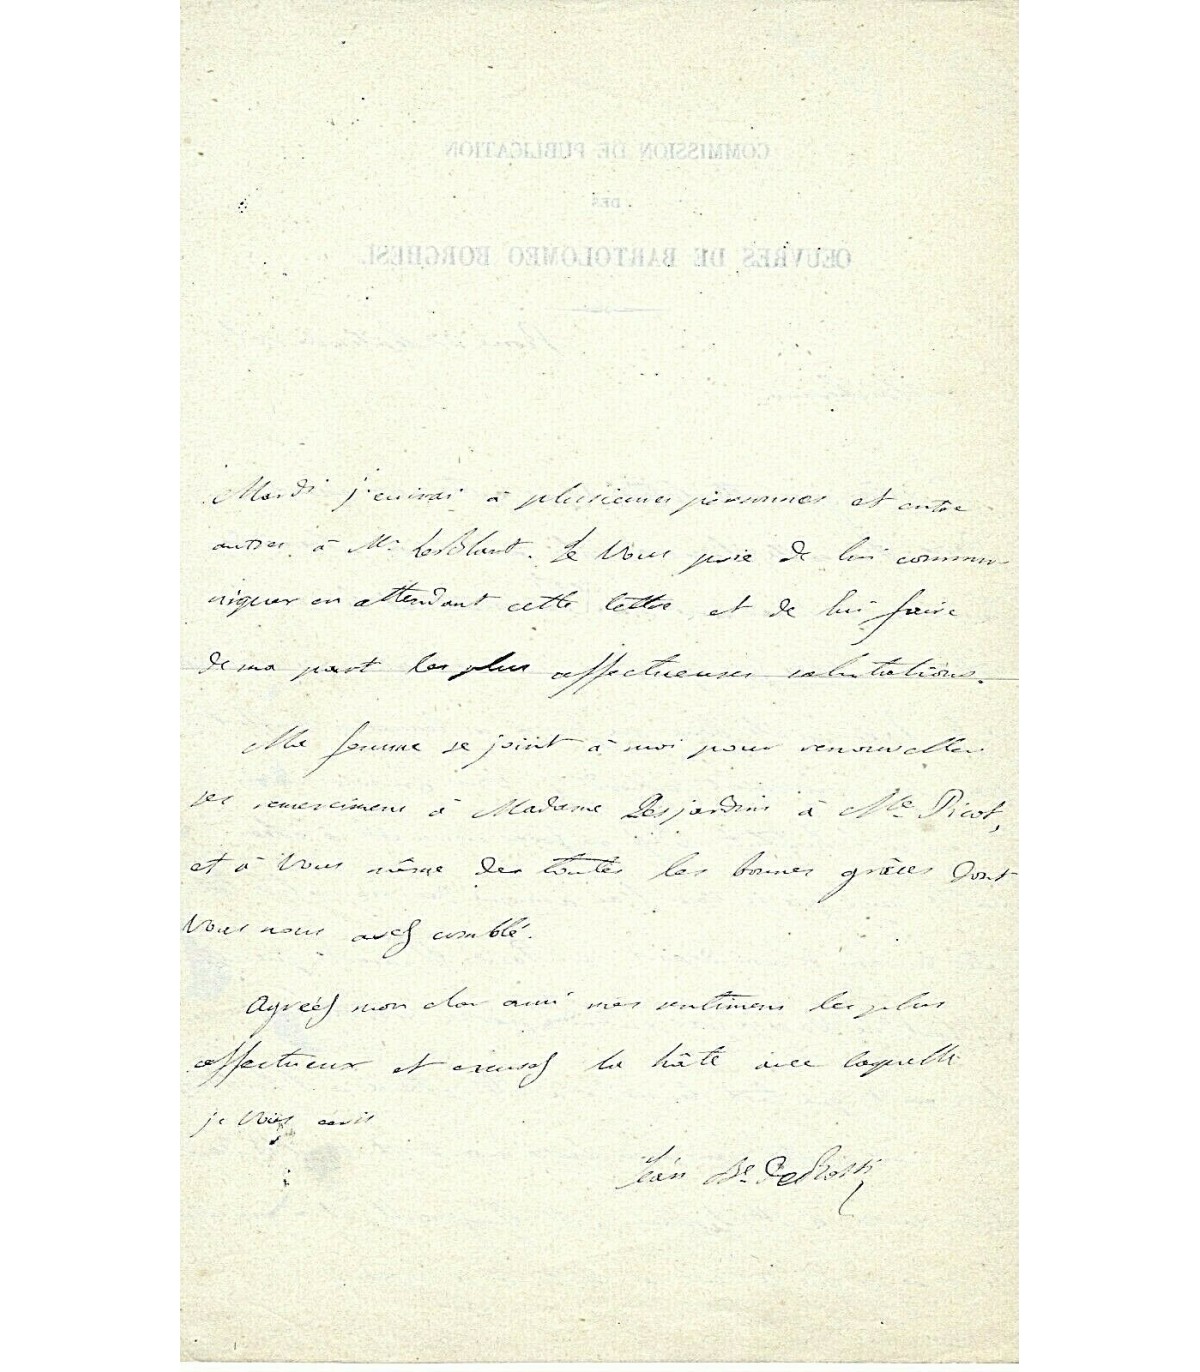 COMMISSION DE PUBLICATION
DES
ŒUVRES DE BARTOLOMEO BORGHESI.
Mardi j'ecrirai à plusieurs personnes et entre
autres à Mr. LeBlant. Je Vous prie de lui commu-
niquer en attendant cette lettre et de lui faire
de ma part les plus affectueuses salutations.
Ma femme se joint à moi pour renouveller
ses remercimens à Madame Desjardins à Me. Picot,
et à Vous même des toutes les bonnes grâces dont
Vous nous avez comblé.
Agréez mon cher ami mes sentimens les plus
affectueux et excusez la hâte avec laquelle
je Vous écris
Jean Bte. de Rossi